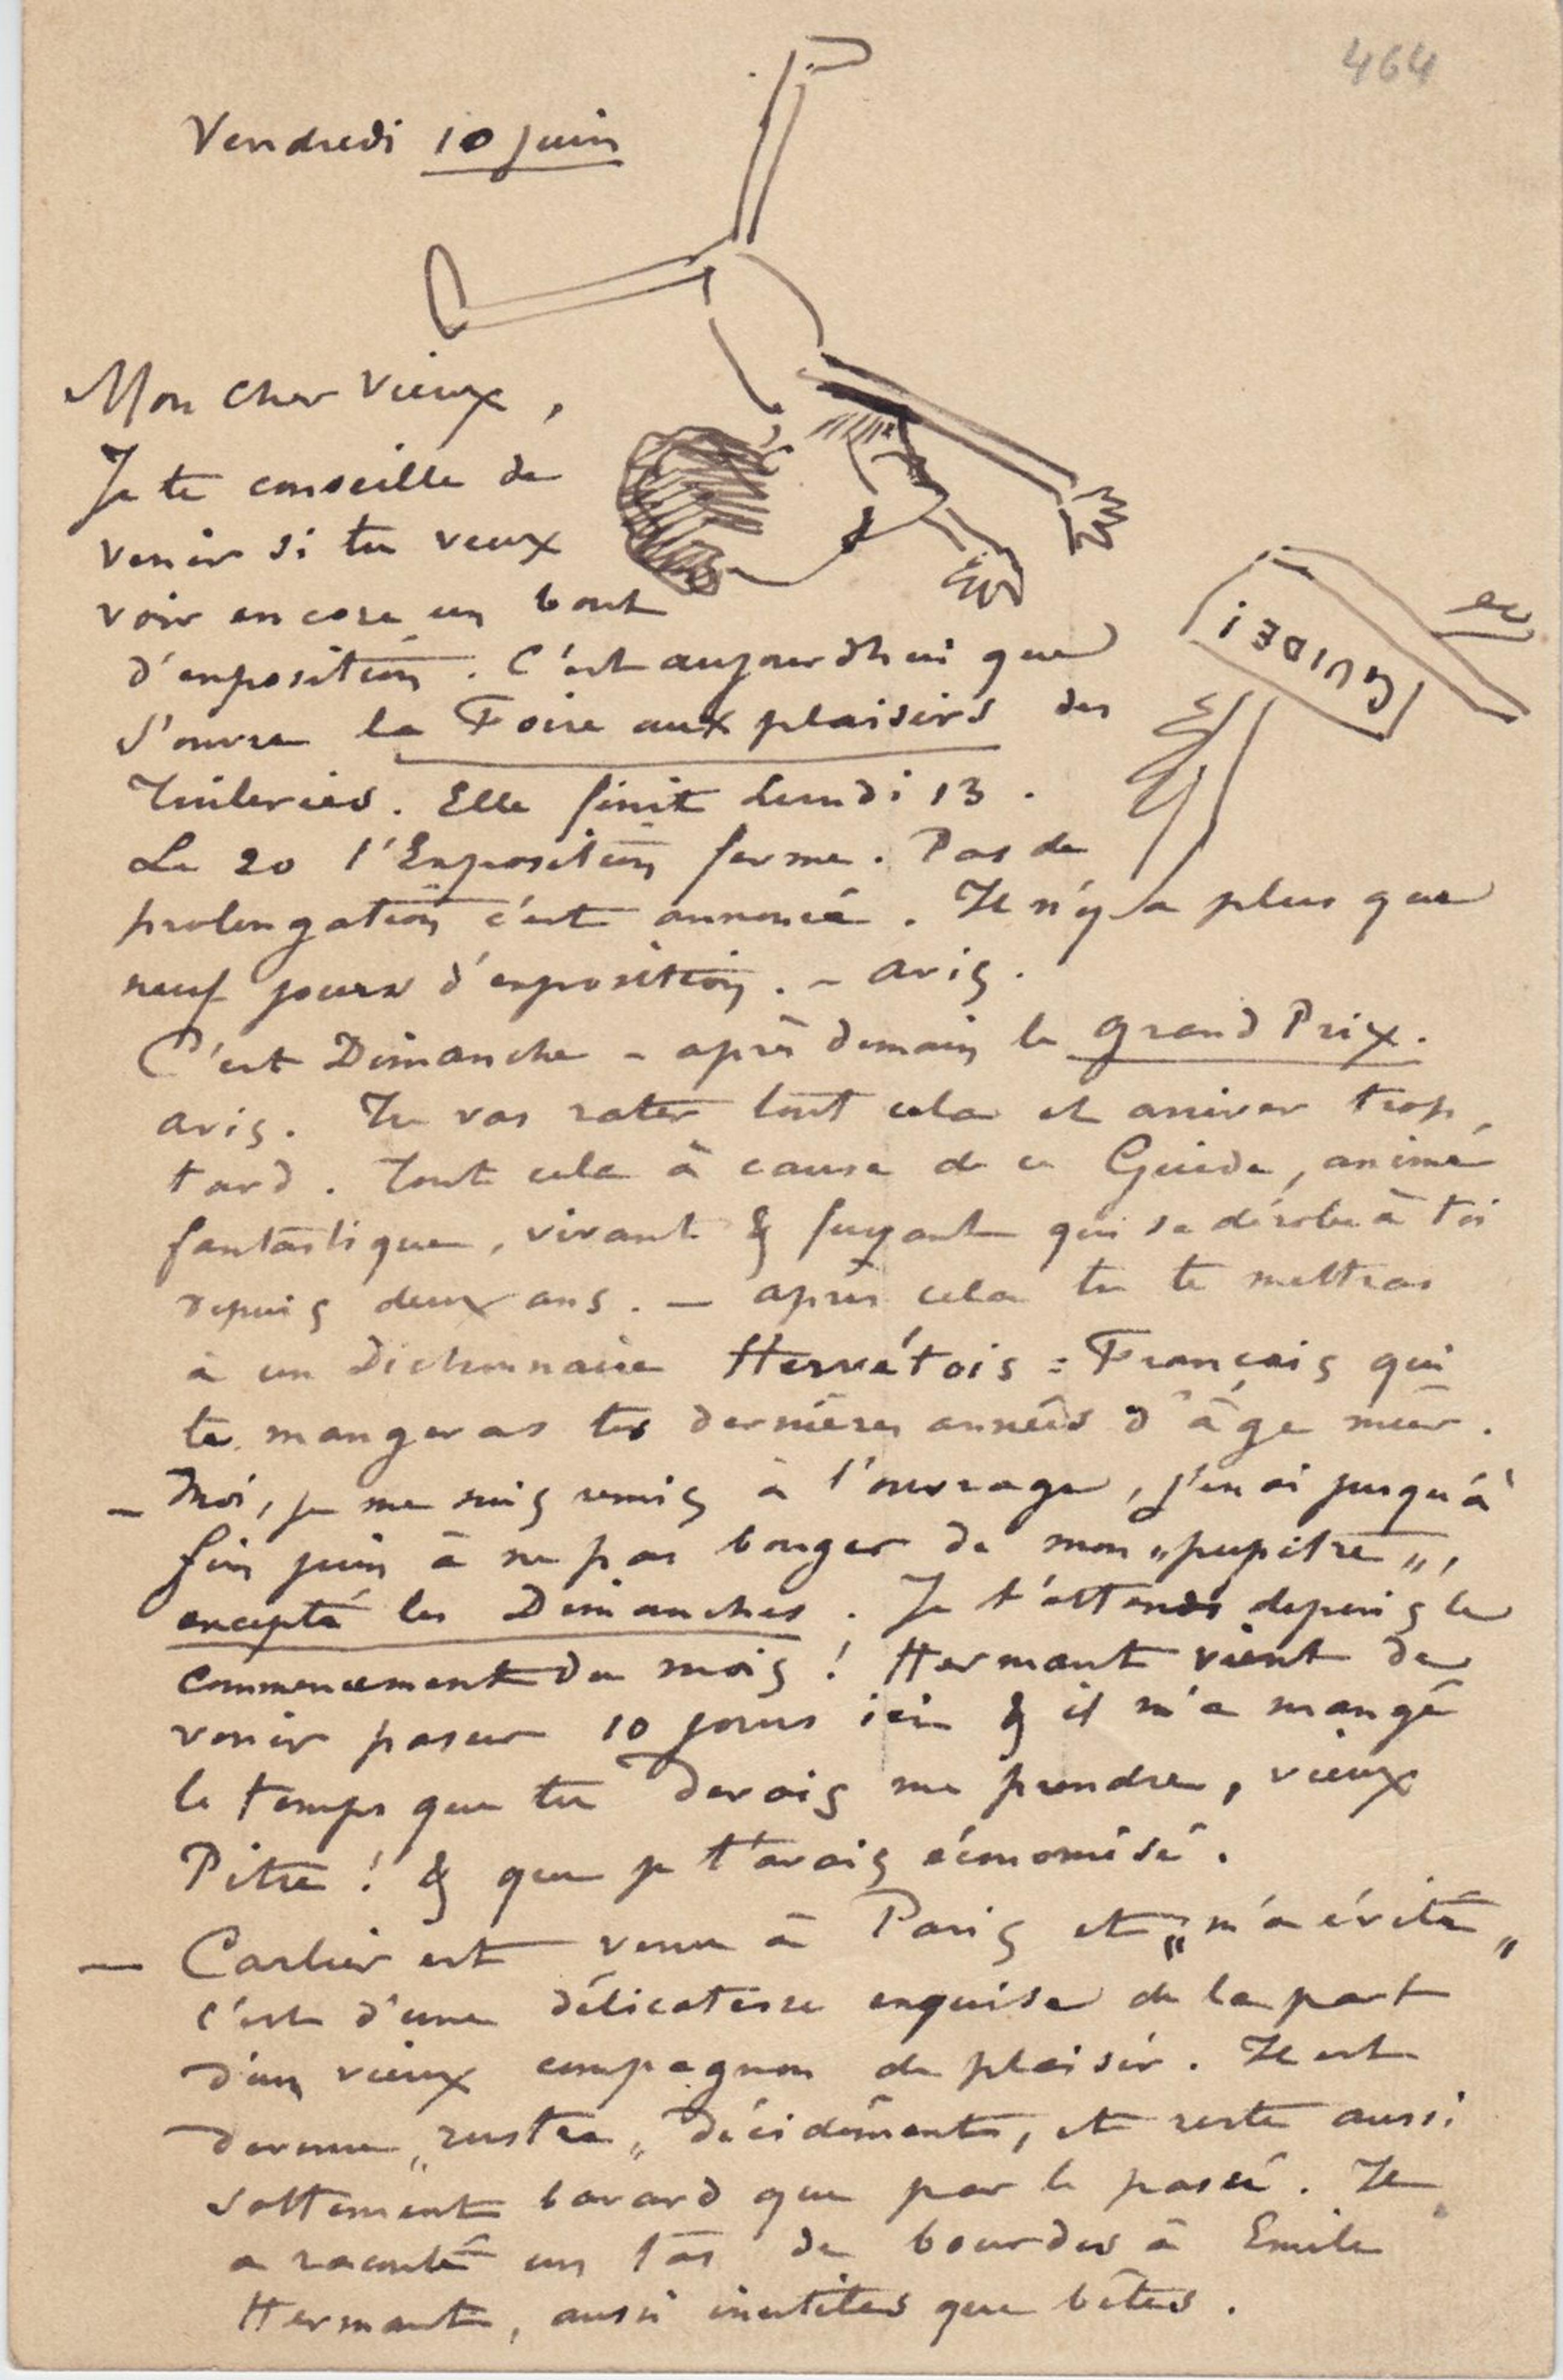 464
Vendredi 10 juin
Mon cher vieux,
Je te conseille de
venir si tu veux
voir encore un bout
d'exposition. C'est aujourdhui que
s'ouvre la Foire aux plaisirs des
Tuileries. Elle finit Lundi 13.
Le 20 l'Exposition ferme. Pas de
prolongation c'est annoncé. Il n'y a plus que
neuf jours d'exposition. – avis.
GUIDE!
C'est Dimanche – après demain le grand Prix.
avis. Tu vas rater tout cela et arriver trop
tard. Tout cela à cause de ce Guide, animé
fantastique, vivant & fuyant qui se dérobe à toi
depuis deux ans. – après cela tu te mettras
à un Dictionnaire Hervétois = Français qui
te mangeras tes dernières années d'âge mûr.
– Moi, je me suis remis à l'ouvrage, j'en ai jusqu'à
fin juin à ne pas bouger de mon „pupitre„,
excepté les Dimanches. Je t'attends depuis le
commencement du mois! Hermant vient de
venir passer 10 jours ici & il m'a mangé
le temps que tu devais me prendre, vieux
Pitre! & que je t'avais économisé.
– Carlier est venu à Paris et „m'a évité„
c'est d'une délicatesse exquise de la part
d'un vieux compagnon de plaisir. Il est
devenu „rustre„ décidément, et reste aussi
sottement bavard que par le passé. Il
a raconté un tas de bourdes à Emile
Hermant, aussi inutiles que bêtes.